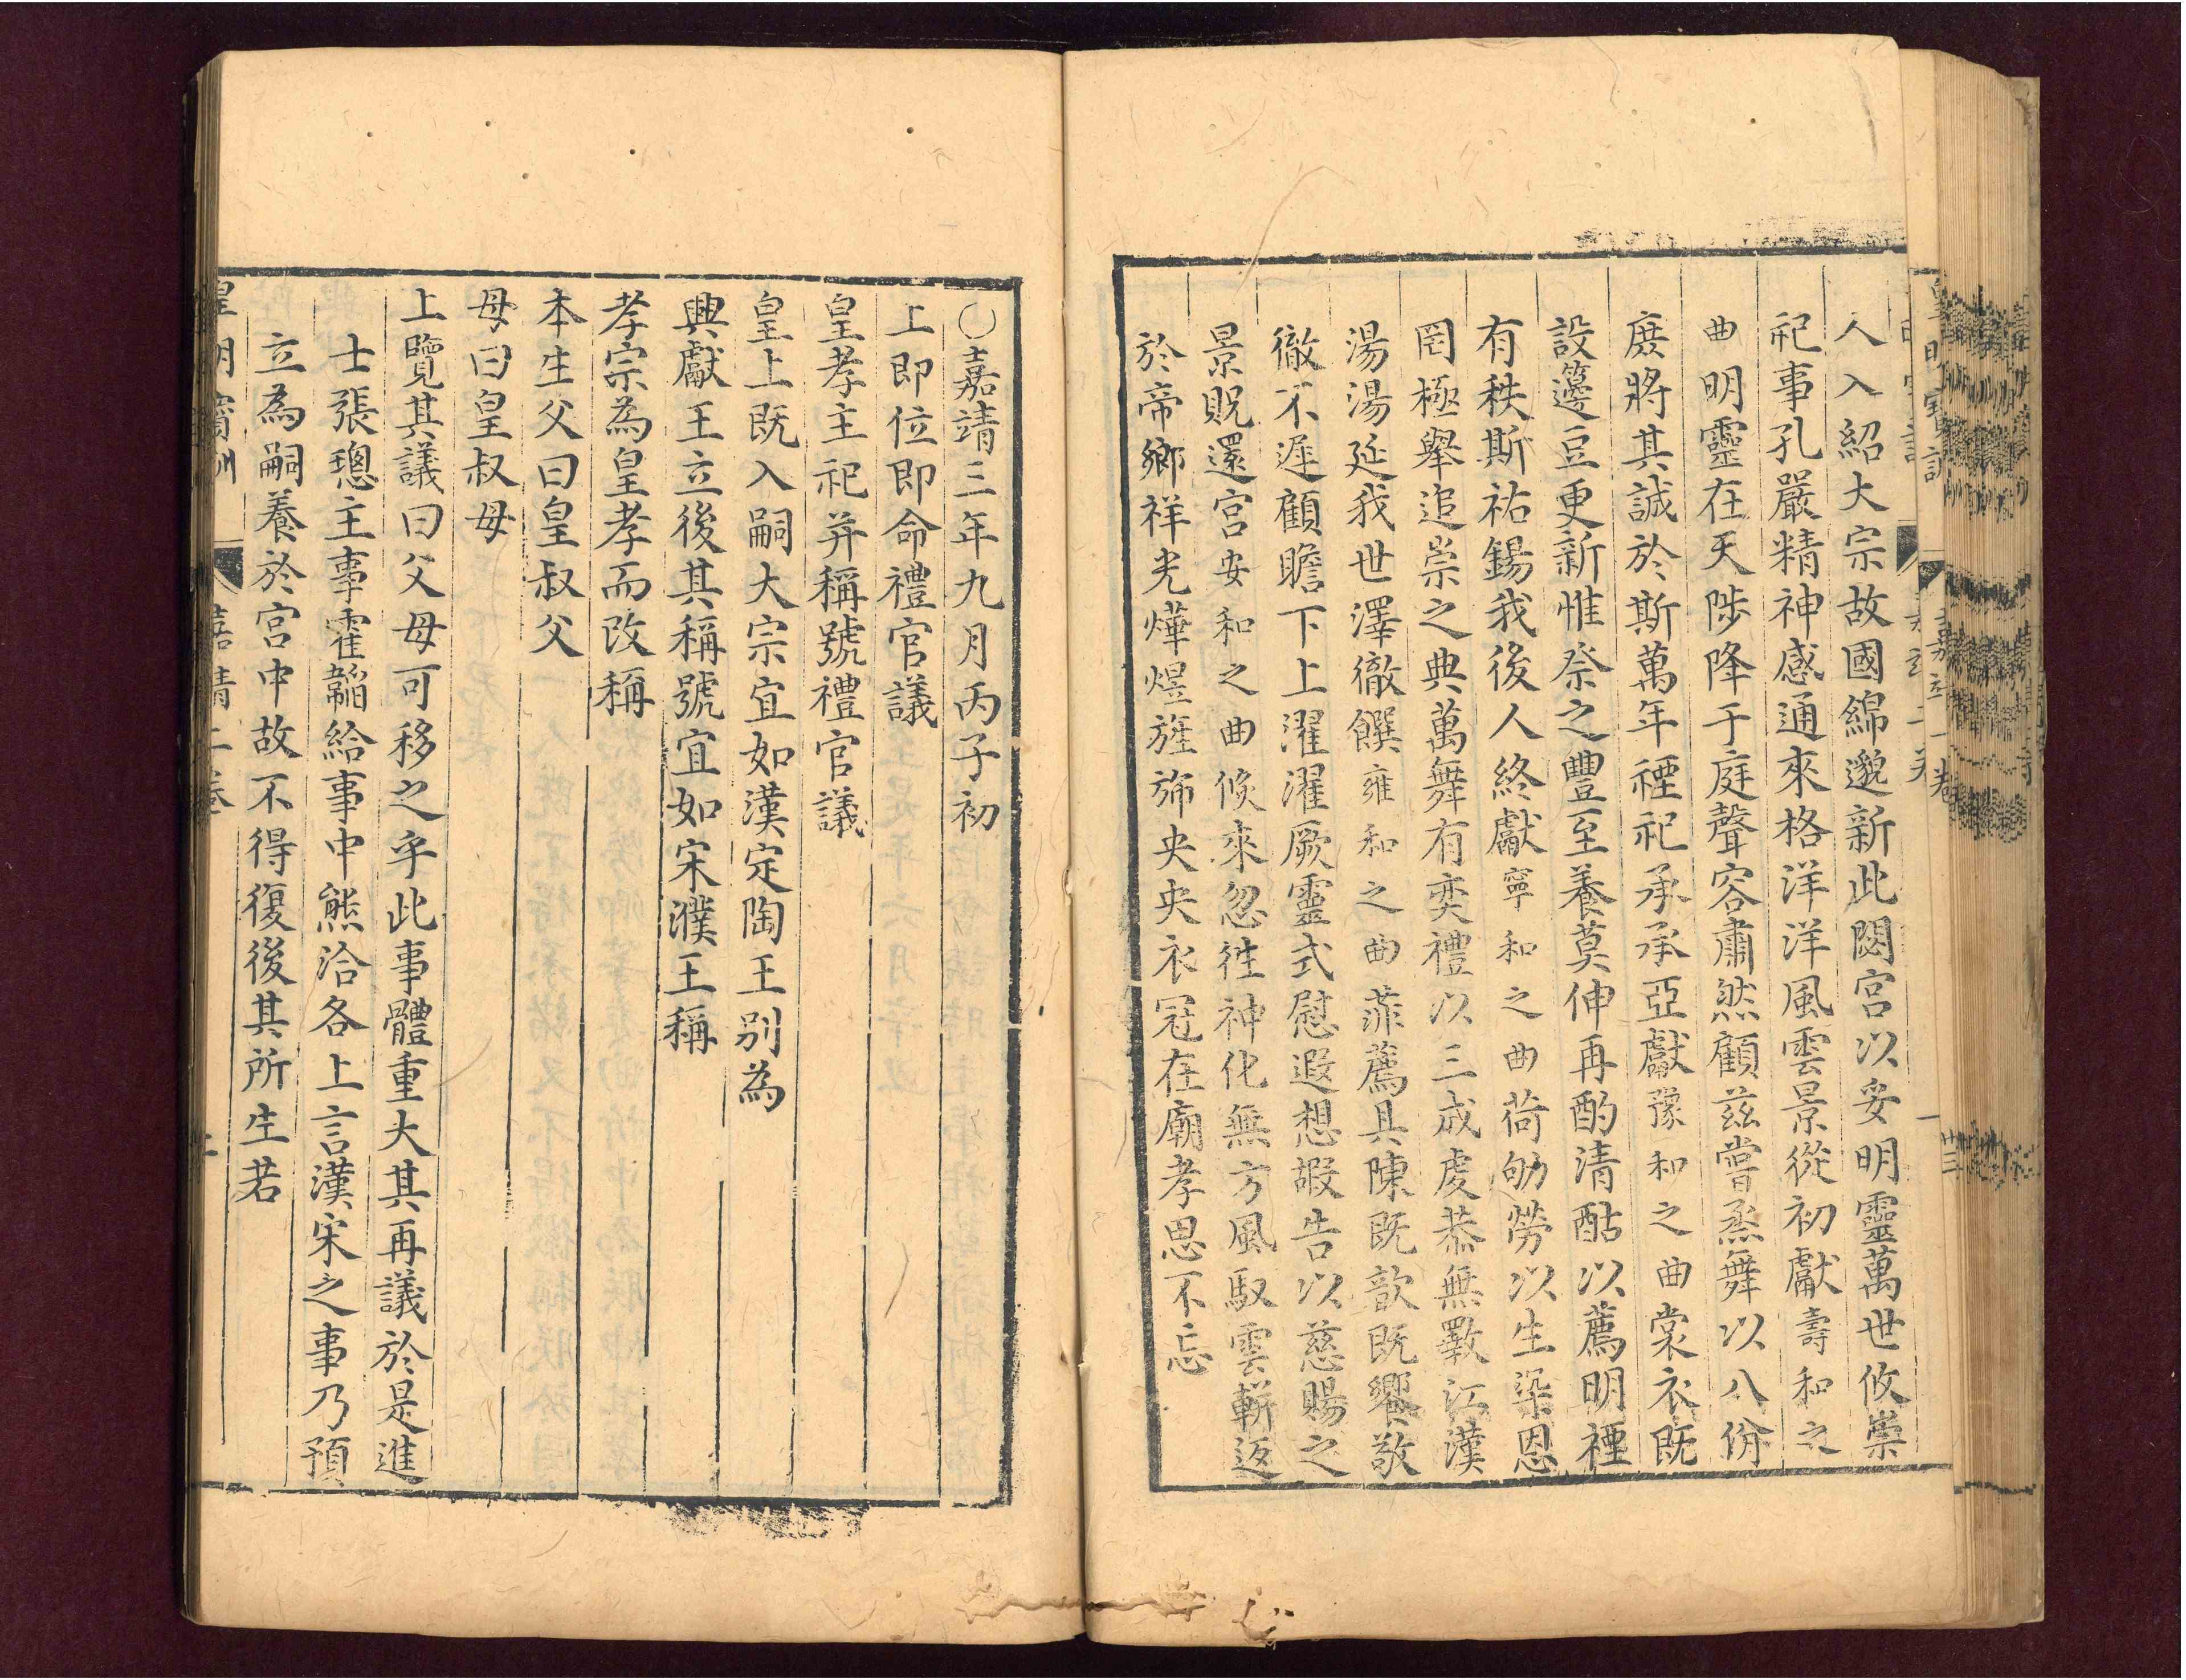 人入紹大宗故國綿邈新此閟宮以妥明靈萬世攸崇
祀事孔嚴精神感通來格洋洋風雲景從初獻壽和之
曲明靈在天陟降于庭聲容肅然顧茲嘗烝舞以八佾
庶將其誠於斯萬年禋祀承承亞獻豫和之曲裳衣既
設籩豆更新惟祭之豐至養莫伸再酌清酤以薦明禋
有秩斯祜錫我後人終獻寧和之曲荷劬勞以生染恩
罔極舉追崇之典萬舞有奕禮以三成虔恭無斁江漢
湯湯延我世澤徹饌雍和之曲菲薦具陳既歆既饗敬
徹不遲顧瞻下上濯濯厥靈式慰遐想嘏告以慈賜之
景貺還宮安和之曲倏來忽徃神化無方風馭雲軿返
於帝鄉祥光燁煜旌旆央央衣冠在廟孝思不忘
○嘉靖三年九月丙子初
上即位即命禮官議
皇孝主祀并稱號禮官議
皇上既入嗣大宗宜如漢定陶王別為
興獻王立後其稱號宜如宋濮王稱
孝宗為皇孝而改稱
本生父曰皇叔父
母曰皇叔母
上覽其議曰父母可移之乎此事體重大其再議於是進
士張璁主事霍韜給事中熊洽各上言漢宋之事乃預
立為嗣養於宮中故不得復後其所生若
皇明寶訓 嘉靖二卷 二